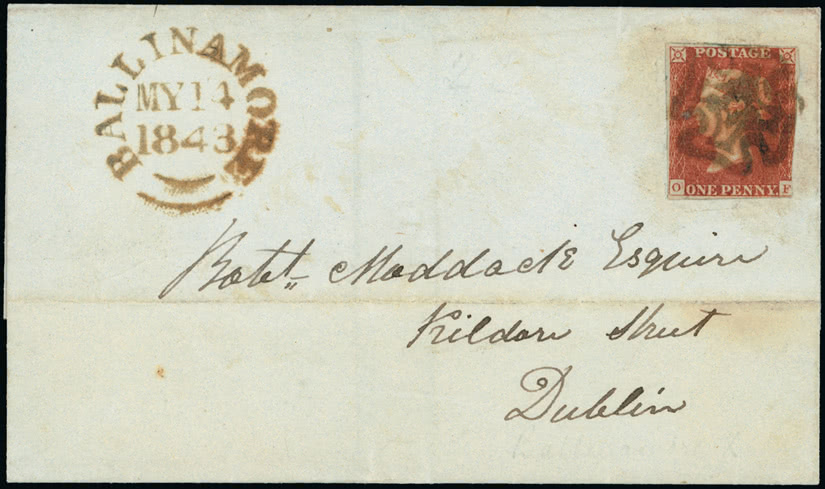 BALLINAMORE
MY 14
1843
POSTAGE
O ONE PENNY F
Robt. Maddock Esquire
Kildare Street
Dublin